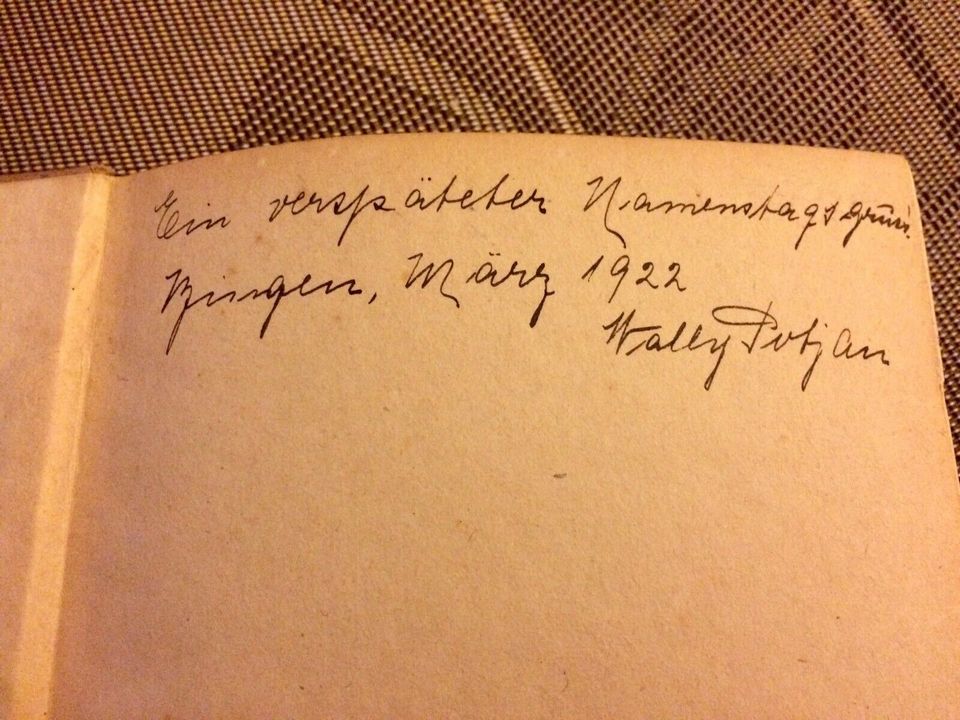 Ein verspäteter Namenstagsgruß.
Bingen, März 1922
Wally Potjan